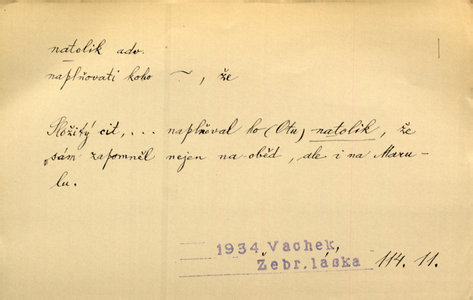 natolik adv.
naplňovati koho ~, že
Složitý cit, ... naplňoval ho (Otu) natolik, že
sám zapomněl nejen na oběd, ale i na Maru-
lu.
1934 Vachek,
Žebr. láska 114. 11.